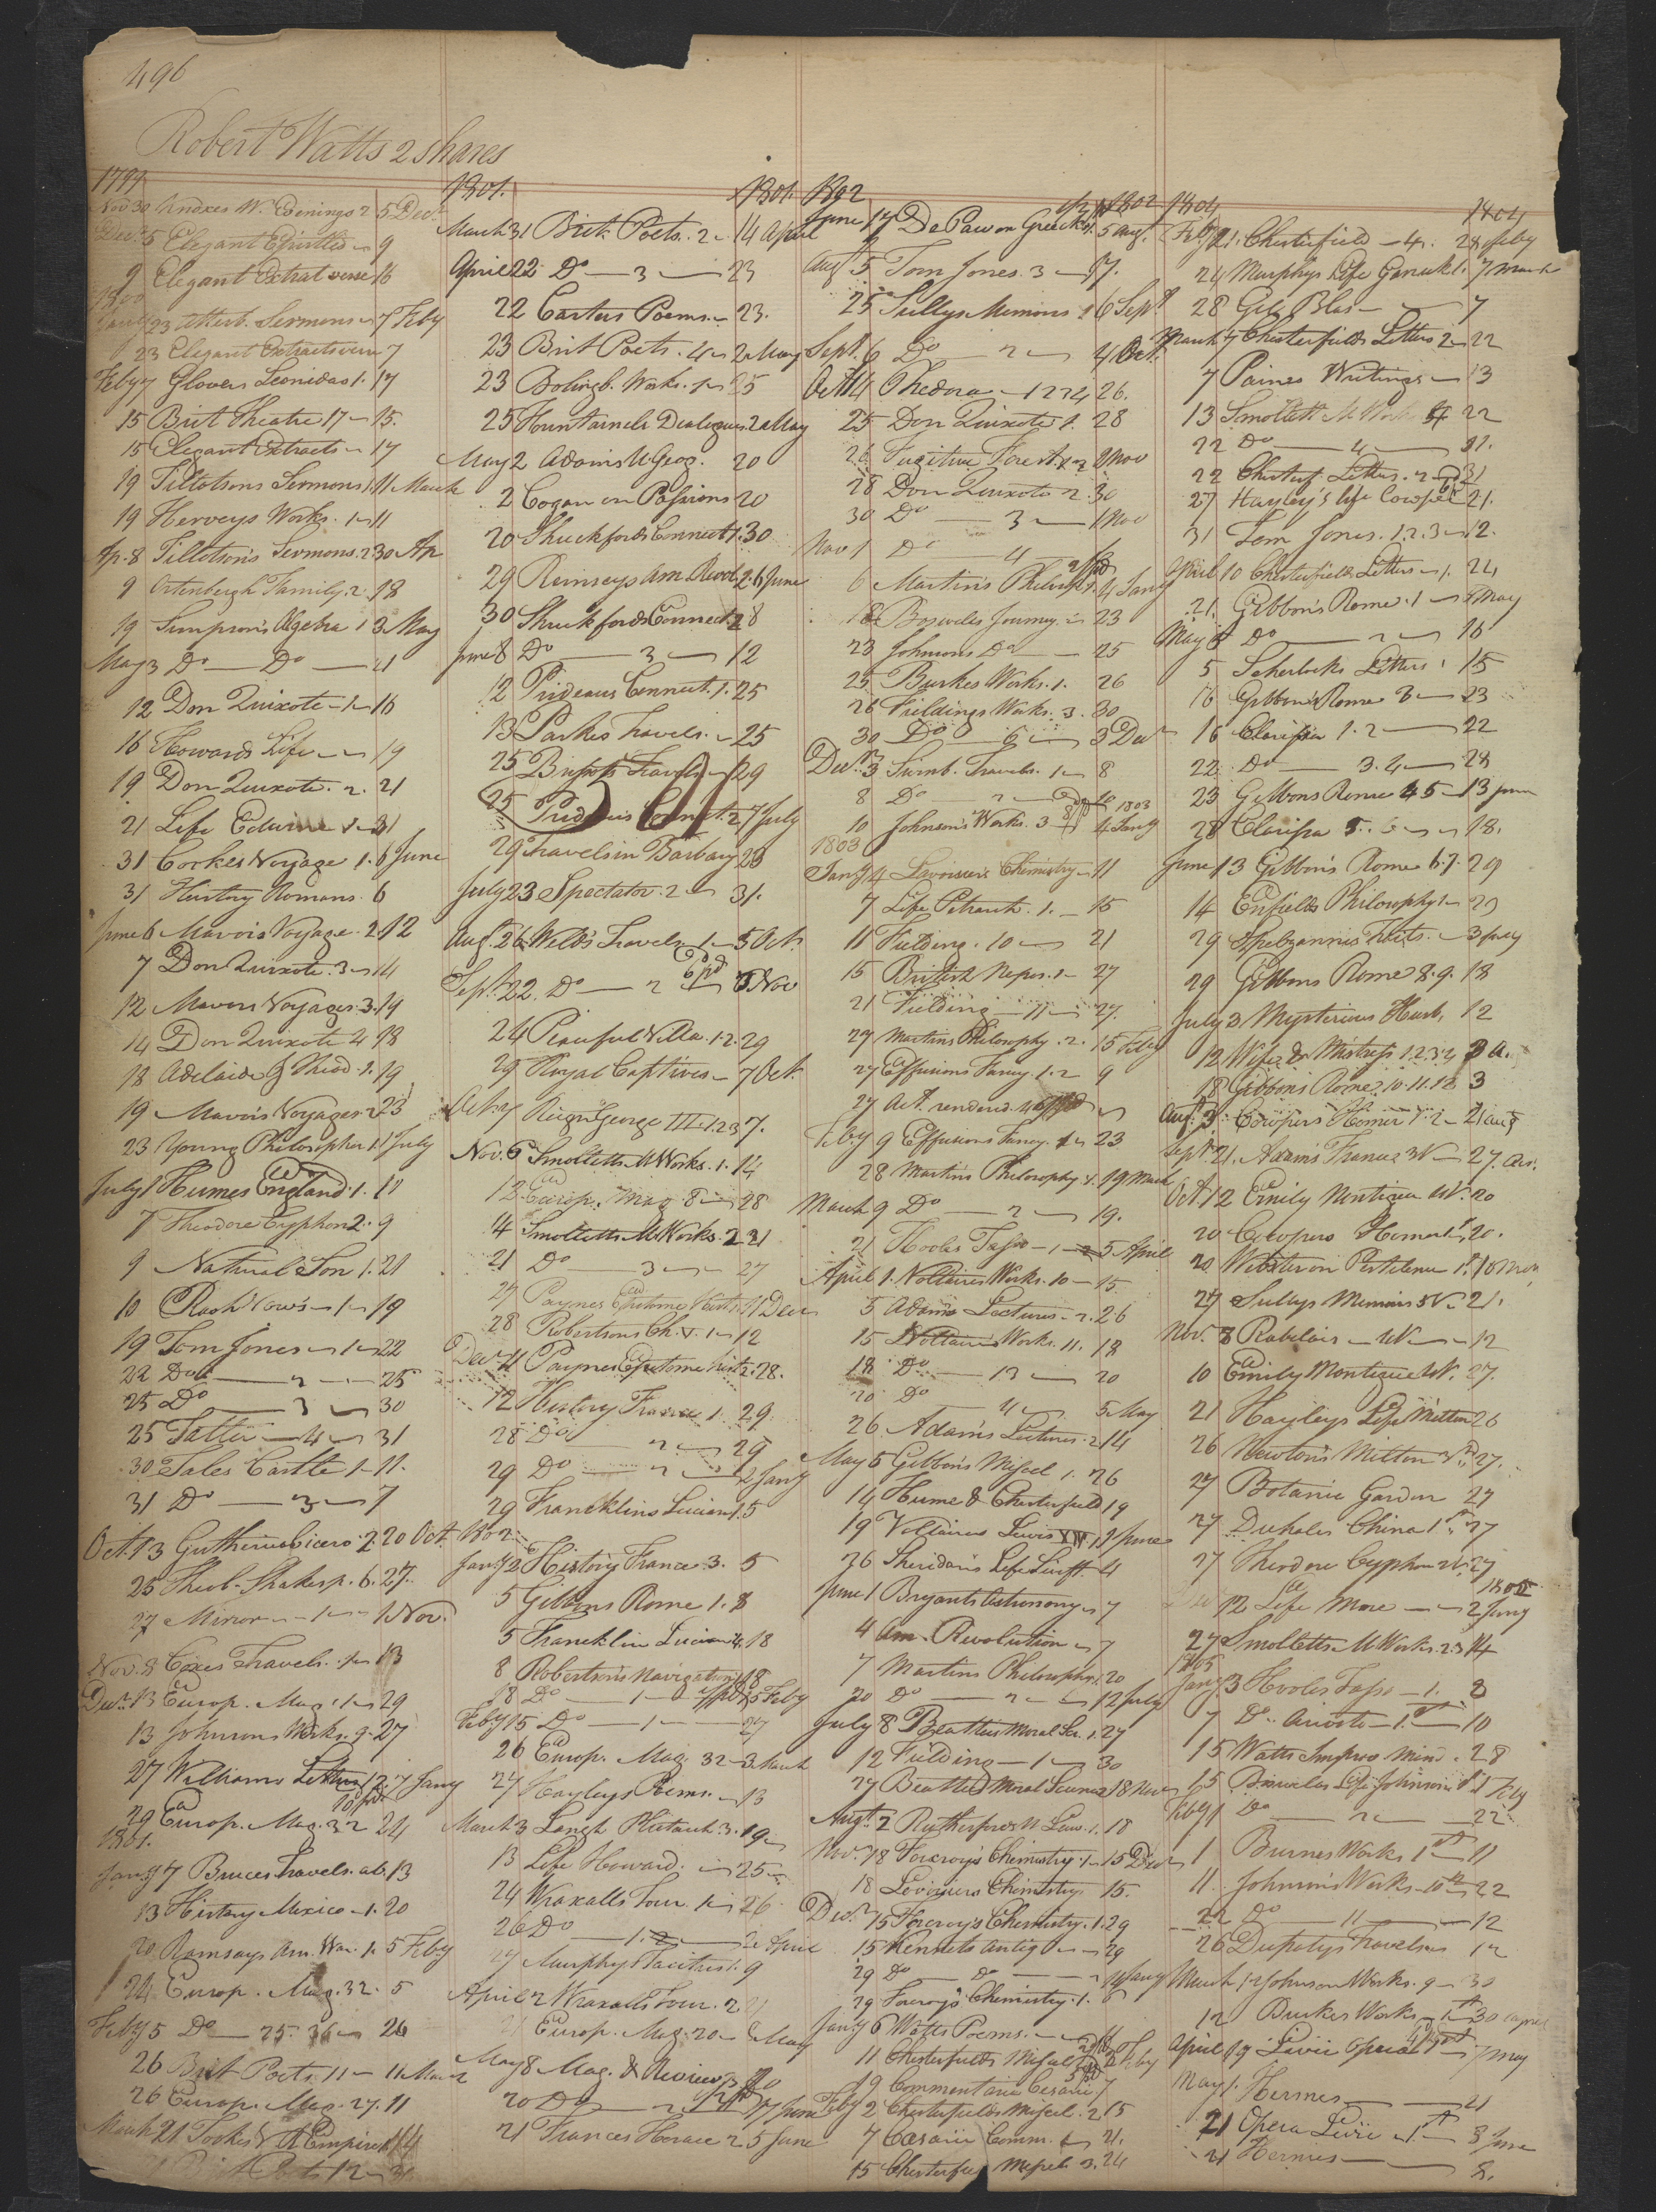 496
Robert Watts 2 shares
1799
Nov 30 Knoxes W. Evenings 2 5 Decr
Decr 5 Elegant Epistles 9
9 Elegant Extrat verse 16
1800
Jany 23 Atterb. Sermons 7 Feby
23 Elegant Extracts verse 7
Feby 7 Glovers Leonidas 1. 17
15 Brit Theatre 17 15.
15 Elegant Extracts 17
19 Tillotsons Sermons 1. 11 March
19 Herveys Works. 1 11
Ap. 8 Tillotsons Sermons. 2 30 Ap
9 Ortenbergh Family. 2. 18
19 Simpson's Algebra 1 3 May
May 3 Do Do 21
12 Don Quixote 1 16
16 Howards Life 19
19 Don Quixote. 2. 21
21 Life Edwin 31
31 Cookes Voyage 1. 6 June
31 History Romans. 6
June 6 Mavors Voyage. 2 12
7 Don Quixote. 3 14
12 Mavors Voyages. 3. 19
14 Don Quixote 4 18
18 Adelaide & Theod. 1. 19
19 Mavors Voyages 23
23 Young Philosopher 1 1 July
July 1 Humes England. 1. 11
7 Theodore Cyphon 2. 9
9 Natural Son 1. 21
10 Rash Vows 1 19
19 Tom Jones 1 22
22 Do 2 25
25 Do 3 30
25 Tatler 4 31
30 Tales Castle 1 11.
31 Do 3 7
Oct. 13 Guthries Cicero 2. 20 Oct.
25 Theob. Shakesp. 6. 27.
27 Mirror 1 1 Nov.
Nov. 8 Coxes Travels. 1 13
Decr 13 Europ. Mag. 1 29
13 Johnsons Works. 9 27
27 Williams Letters 1 2. 7 Jany
29 Europ. Mag. 32 24
1801.
Jany 7 Bruces Travels. ab. 13
13 History Mexico 1. 20
20 Ramsays Am. War. 1. 5 Feby
24 Europ. Mag. 32. 5
Feby 5 Do 25. 26
26 Brit Poets 11 11 March
26 Europ. Mag. 27. 11
March 21 Tookes Empire
12
1801. 1801.
March 31 Brit. Poets. 2 14 April
April 22 Do 3 23
22 Carters Poems. 23.
23 Brit Poets. 4 2 May
23 Bolingb. Works. 1 25
25 Fountanels Dialogues 2 May
May 2 Adams Geog. 20
2 Cogan on Passions 20
20 Shuckfords Connect. 1. 30
29 Ramseys Am. Revol. 2. 6 June
30 Shuckfords Connect. 2 8
June 8 Do 3 12
12 Prideaux Connect. 1. 25
13 Parkes Travels. 25
25 Brissots Travels 29
25 Prideaux Connect. 2 7 July
29 Travels in Barbary 23
July 23 Spectator. 2 31.
Aug. 26 Welds Travels 1 5 Oct.
Sept. 22. Do 2 6 pd 3 Nov
24 Peaceful Villa. 1. 2. 29
29 Royal Captives 7 Oct.
Oct. 7 Reign George III 1. 2 3 7.
Nov. 6 Smolletts M Works. 1. 14
12 Europ. Mag. 8 28
14 Smolletts M Works. 2 21
21 Do 3 27
27 Paynes Epitome Hist. 11 Decr
28 Robertsons Ch. V. 1 12
Decr 11 Paynes Epitome hist. 2. 28.
12 History France 1. 29.
28 Do 2 29
29 Do 2 2 Jany
29 Francklins Lucian 1. 5
1802
Jany 2 History France 3. 5
5 Gibbons Rome 1. 8
5 Francklin Lucian 4. 18
8 Robertson's Navigation 18
18 Do 1 5 Feby
Feby 15 Do 1 27
26 Europ. Mag. 32 3 March
27 Hayleys Poems. 13
March 3 Langh Plutarch. 3. 19
13 Life Howard. 25
24 Wraxalls Tour. 1 26
26 Do 1. 2 2 April
27 Murphys Tacitus 1. 9
April 2 Wraxalls Tour. 2. 21
21 Europ. Mag. 20 8 May
May 8 Mag. & Review
20 Do 2 17 June
21 Frances Horace 2. 5 June
1802 1802
June 17 De Paw on Greeks 5 Aug.
Aug 5 Tom Jones. 3 17.
25 Sullys Memoirs 1 6 Sept
Sept. 6 Do 2 4 Oct.
Oct 14 Phedora 1 2 3 4 26.
25 Don Quixote 1. 28
26 Fugitive Forest 1 2 2 Nov
28 Don Quixote 2. 30
30 Do 3 1 Nov
Nov 1 Do 4
6 Martins Philosophy 1. 4 Jany
18 Boswells Journey. 23
23 Johnsons Do 25
25 Burkes Works. 1. 26
26 Fieldings Works. 3. 30
30 Do 6 3 Decr
Decr 3 Swinb. Travels. 1 8
8 Do 2 10
10 Johnson's Works. 3 4 Jany 1803
1803
Jany 4 Lavoisiers Chemistry 11
7 Life Petrarch. 1. 15
11 Fielding. 10 21
15 British Nepos. 1 27
21 Fielding 11 27.
27 Martins Philosophy. 2. 15 Feby
27 Effusions Fancy. 1. 2 9
27 Act. rendered
Feby 9 Effusions Fancy. 1 23
28 Martins Philosophy 1. 19 March
March 9 Do 2 19.
21 Hooles Tasso 1 2 5 April
April 1. Voltaires Works. 10 15.
5 Adams Lectures 2. 26
15 Voltaires Works. 11. 18
18 Do 13 20
20 Do 4 5 May
26 Adams Lectures. 2 14
May 5 Gibbons Miscel 1. 26
14 Hume & Chesterfield 19
19 Voltaires Lewis XIV 1 1 June
26 Sheridans Life Swift. 4
June 1 Bryants Astronomy 7
4 Am. Revolution 7
7 Martins Philosophy 20
20 Do 2 12 July
July 8 Beatties Moral Sci. 1. 27
12 Fielding 1 30
27 Beatties Moral Science 2 18 Nov
Augt. 2 Rutherfords Law. 1. 18
Nov. 18 Forcroys Chemistry 1 15 Decr
18 Lavoisiers Chemistry 15.
Decr 15 Forcroys Chemistry. 1. 29
15 Kennets Antiq 29
29 Do Do 14 Jany
29 Forcroys Chemistry. 1. 6
Jany 6 Watts Poems. 11
11 Chesterfields Miscel Feby
19 Commentaria Cesarii 7
Feby 2 Chesterfields Miscel. 2 15
7 Cæsarii Comm. 21.
15 Chesterfield Miscel. 3. 24
1804 1804
Feby 21. Chesterfield 4. 28 Feby
24 Murphys Life Garrick 1. 7 March
28 Gil Blas 7
March 7 Chesterfields Letters 2 22
7 Paines Writings 13
13 Smollett M Works 22
22 Do 4 31.
22 Chesterf. Letters. 2 31
27 Hayley's life Cowper 21.
31 Tom Jones. 1. 2. 3 12.
April 10 Chesterfields Letters 1. 24
21. Gibbon's Rome. 1 5 May
May 5 Do 2 16
5 Scherlocks Letters 1 15
16 Gibbon's Rome 3 23
16 Clarissa 1. 2 22
22 Do 3. 4 28
23 Gibbons Rome 4 5 13 June
28 Clarissa 5. 6 18.
June 13 Gibbon's Rome 6. 7. 29
14 Enfields Philosophy 1 29
29 Spelzannies Tracts. 3 July
29 Gibbons Rome 8. 9. 18
July 3 Mysterious Husb. 12
12 Wife & Mistress 1. 2. 3. 4 3 A.
18 Gibbon's Rome. 10. 11. 12 3
Aug. 3. Cowpers Homer 1. 2 21 Aug
Sept. 21. Adams France 27. Oct.
Oct 12 Emily Montigue 20
20 Cowpers Homer 1st 20.
20 Webster on Pestilence 1st 10 Nov
27 Sullys Memoirs 5 V. 21.
Nov. 8 Rabelais 12
10 Emily Montigue 27.
21 Hayleys Life Milton 26
26 Newton's Milton 27.
27 Botanic Garden 27
27 Duhales China 1st 27
27 Theodore Cyphon 27
Decr 12 Life More 2 Jany 1805
27 Smolletts M Works. 2 3 14
1805
Jany 3 Hooles Tasso 1. 8
7 Do. Ariosto 1. 10
15 Watts Improv Mind. 28
15 Boswells Life Johnson 1st 1 Feby
Feby 1 Do 2 22
1 Burnes Works 1st 11
11. Johnson's Works 10th 22
22 Do 11 12
26 Dupatys Travels 12
March 12 Johnson Works. 9 30
12 Burkes Works 1st 30 April
April 19 Livii Opera 1st 7 May
May 1. Hermes 21
21 Opera Livii 1st 8 June
21 Hermes 8.